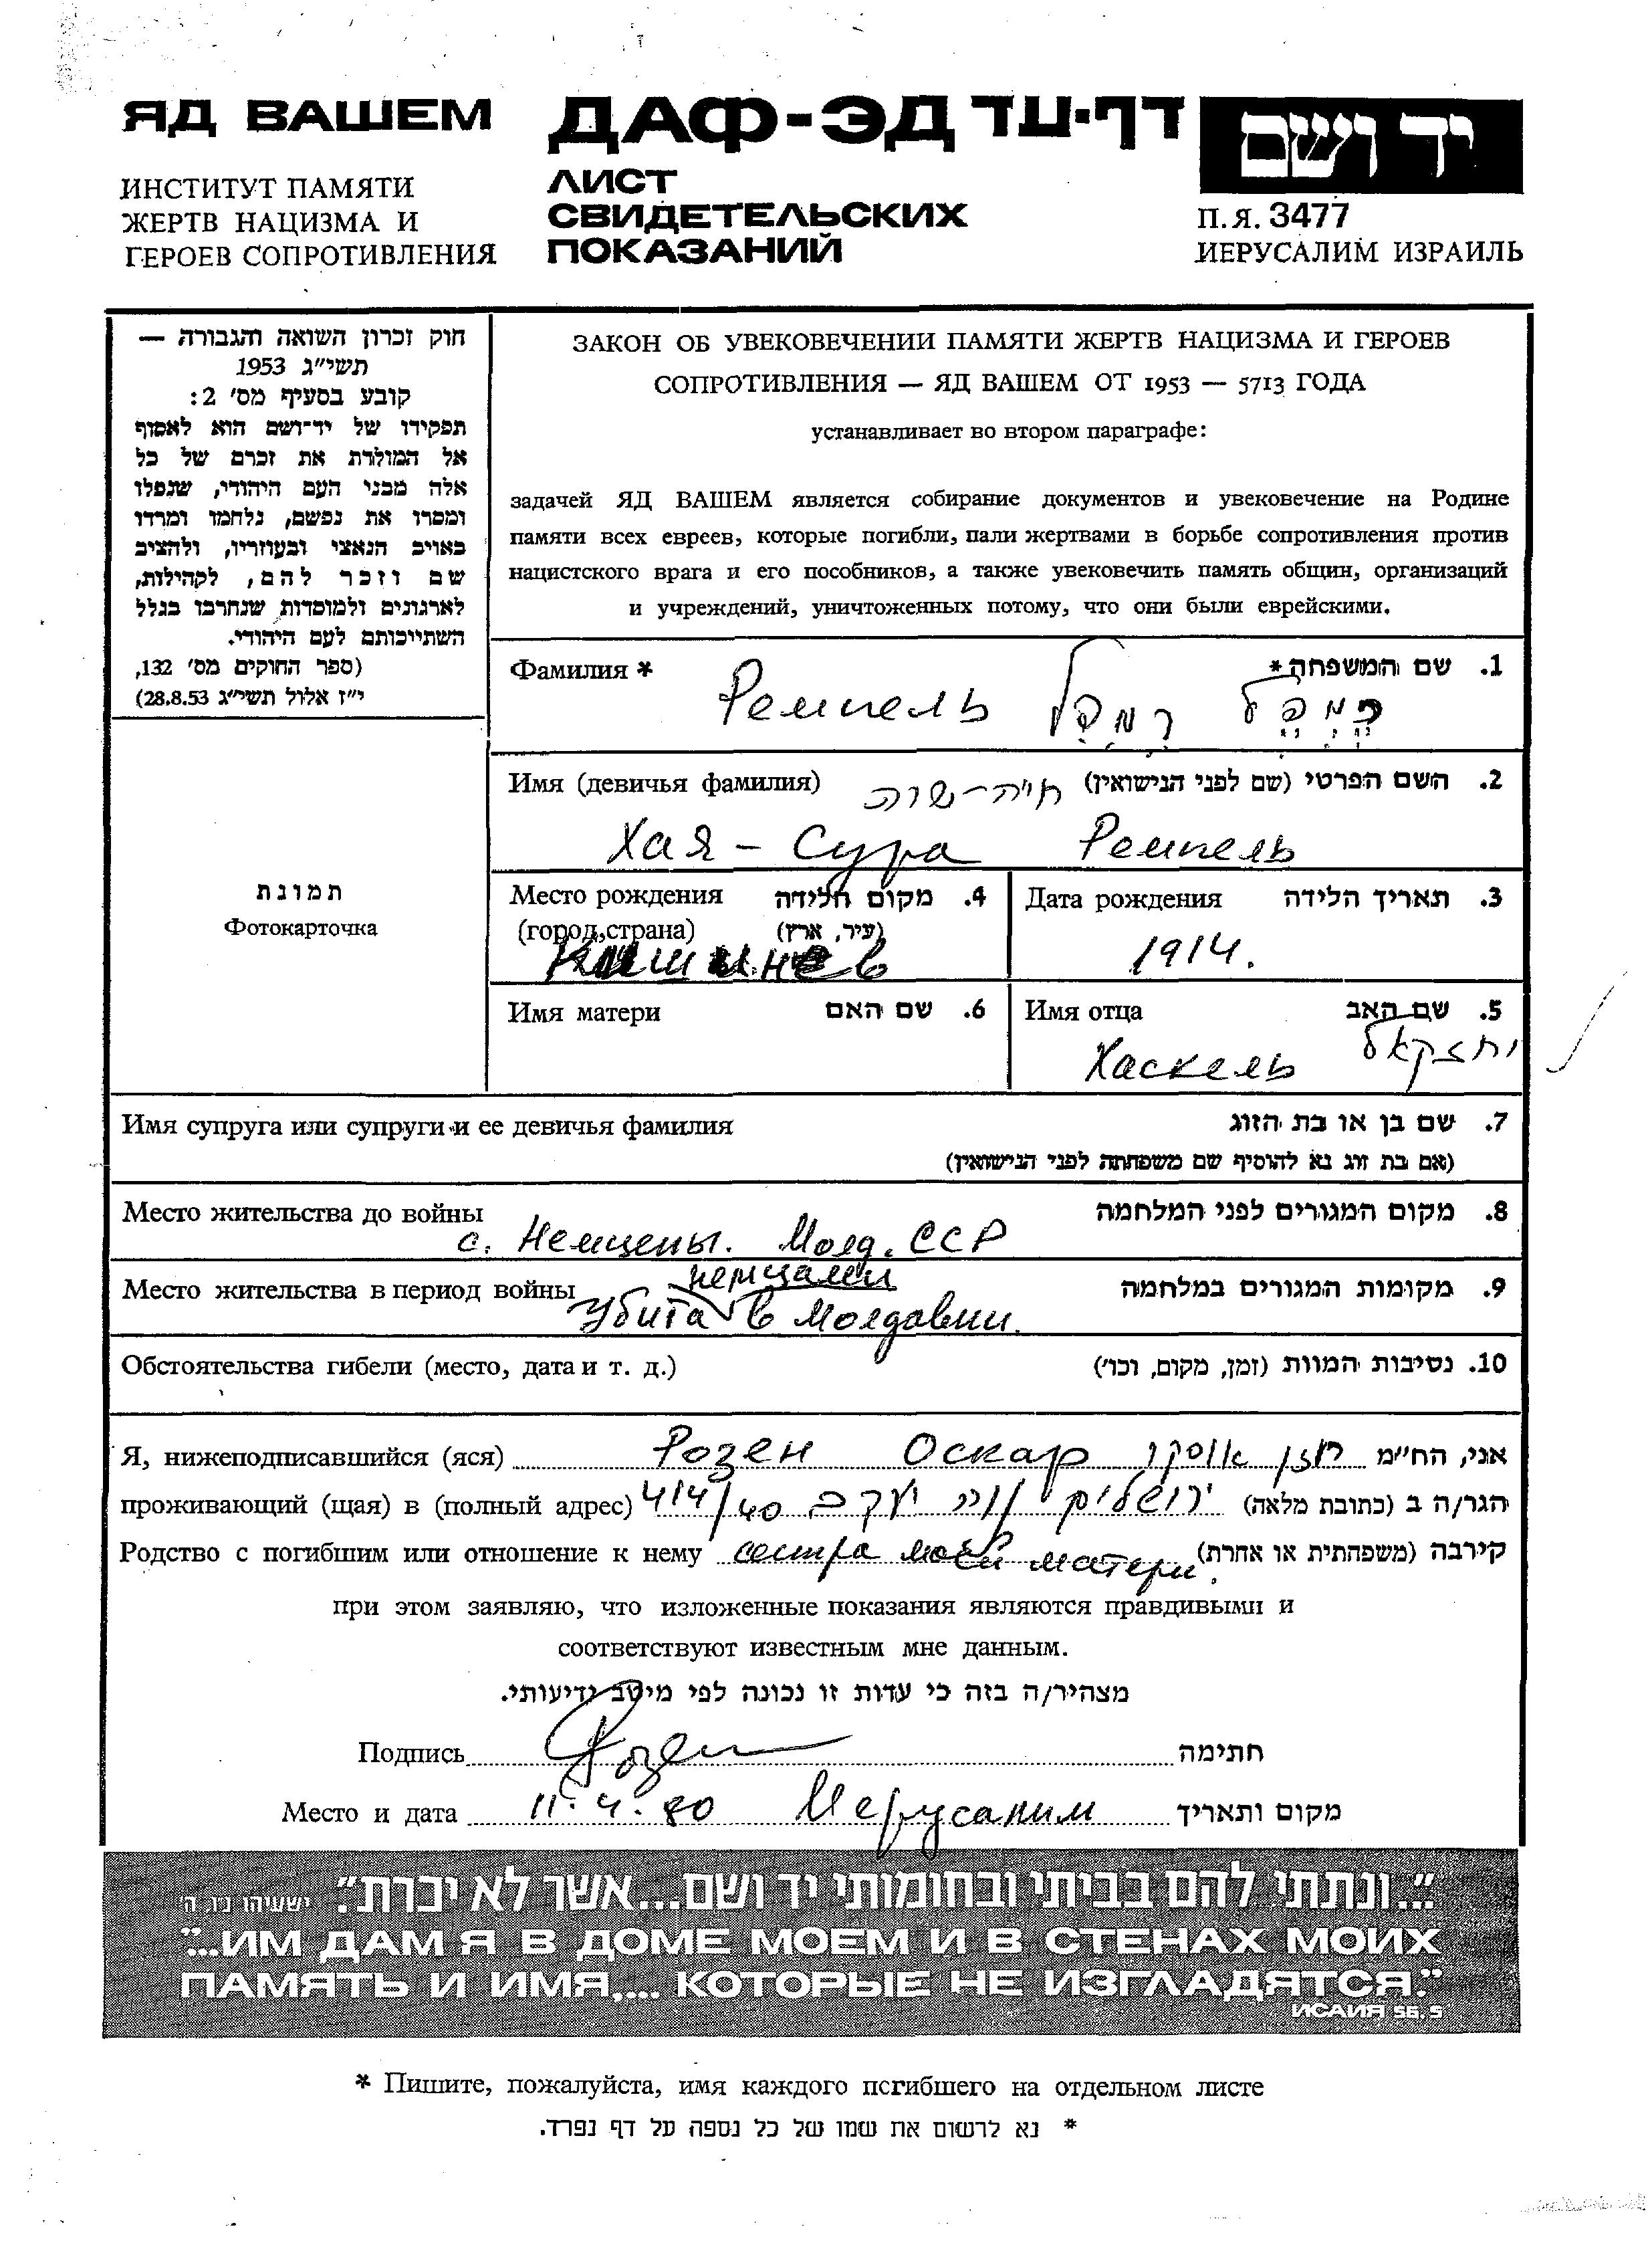 ЯД ВАШЕМ
ИНСТИТУТ ПАМЯТИ
ЖЕРТВ НАЦИЗМА И
ГЕРОЕВ СОПРОТИВЛЕНИЯ
ДАФ-ЭД דף-עד
ЛИСТ
СВИДЕТЕЛЬСКИХ
ПОКАЗАНИЙ
יד ושם
П.Я. 3477
ИЕРУСАЛИМ ИЗРАИЛЬ
חוק זכרון השואה והגבורה —
תשי״ג 1953
קובע בסעיף מס׳ 2:
תפקידו של יד־ושם הוא לאסוף
אל המולדת את זכרם של כל
אלה מבני העם היהודי, שנפלו
ומסרו את נפשם, נלחמו ומרדו
באויב הנאצי ובעוזריו, ולהציב
שם וזכר להם, לקהילות,
לארגונים ולמוסדות שנחרבו בגלל
השתייכותם לעם היהודי.
(ספר החוקים מס׳ 132,
י״ז אלול תשי״ג 28.8.53)
ЗАКОН ОБ УВЕКОВЕЧЕНИИ ПАМЯТИ ЖЕРТВ НАЦИЗМА И ГЕРОЕВ
СОПРОТИВЛЕНИЯ — ЯД ВАШЕМ ОТ 1953 — 5713 ГОДА
устанавливает во втором параграфе:
задачей ЯД ВАШЕМ является собирание документов и увековечение на Родине
памяти всех евреев, которые погибли, пали жертвами в борьбе сопротивления против
нацистского врага и его пособников, а также увековечить память общин, организаций
и учреждений, уничтоженных потому, что они были еврейскими.
Фамилия * 1. שם המשפחה*
Ремпель רמפל רמפל
Имя (девичья фамилия) חיה-שורה 2. השם הפרטי (שם לפני הנישואין)
Хая - Сура Ремпель
תמונת
Фотокарточка
Место рождения 4. מקום הלידה
(город,страна) (עיר, ארץ)
Кишинев
Дата рождения 3. תאריך הלידה
1914.
Имя матери 6. שם האם
Имя отца 5. שם האב
Хаскель יחזקאל
Имя супруга или супруги и ее девичья фамилия 7. שם בן או בת הזוג
(אם בת זוג נא להוסיף שם משפחתה לפני הנישואין)
Место жительства до войны 8. מקום המגורים לפני המלחמה
с. Немцены. Молд. ССР
Место жительства в период войны 9. מקומות המגורים במלחמה
немцами
Убита в Молдавии.
Обстоятельства гибели (место, дата и т. д.) 10. נסיבות המוות (זמן, מקום, וכו׳)
Я, нижеподписавшийся (яся) Розен Оскар רוזן אוסקר אני, החי״מ
проживающий (щая) в (полный адрес) 414/40 ירושלים נוה יעקב הגר/ה ב (כתובת מלאה)
Родство с погибшим или отношение к нему сестра моей матери. קירבה (משפחתית או אחרת)
при этом заявляю, что изложенные показания являются правдивыми и
соответствуют известным мне данным.
מצהיר/ה בזה כי עדות זו נכונה לפי מיטב ידיעותי.
Подпись Розен חתימה
Место и дата 11.4.80 Иерусалим מקום ותאריך
״...ונתתי להם בביתי ובחומותי יד ושם...אשר לא יכרת״. ישעיהו נו, ה׳
"...ИМ ДАМ Я В ДОМЕ МОЕМ И В СТЕНАХ МОИХ
ПАМЯТЬ И ИМЯ.... КОТОРЫЕ НЕ ИЗГЛАДЯТСЯ."
ИСАИЯ 56, 5
* Пишите, пожалуйста, имя каждого погибшего на отдельном листе
* נא לרשום את שמו של כל נספה על דף נפרד.